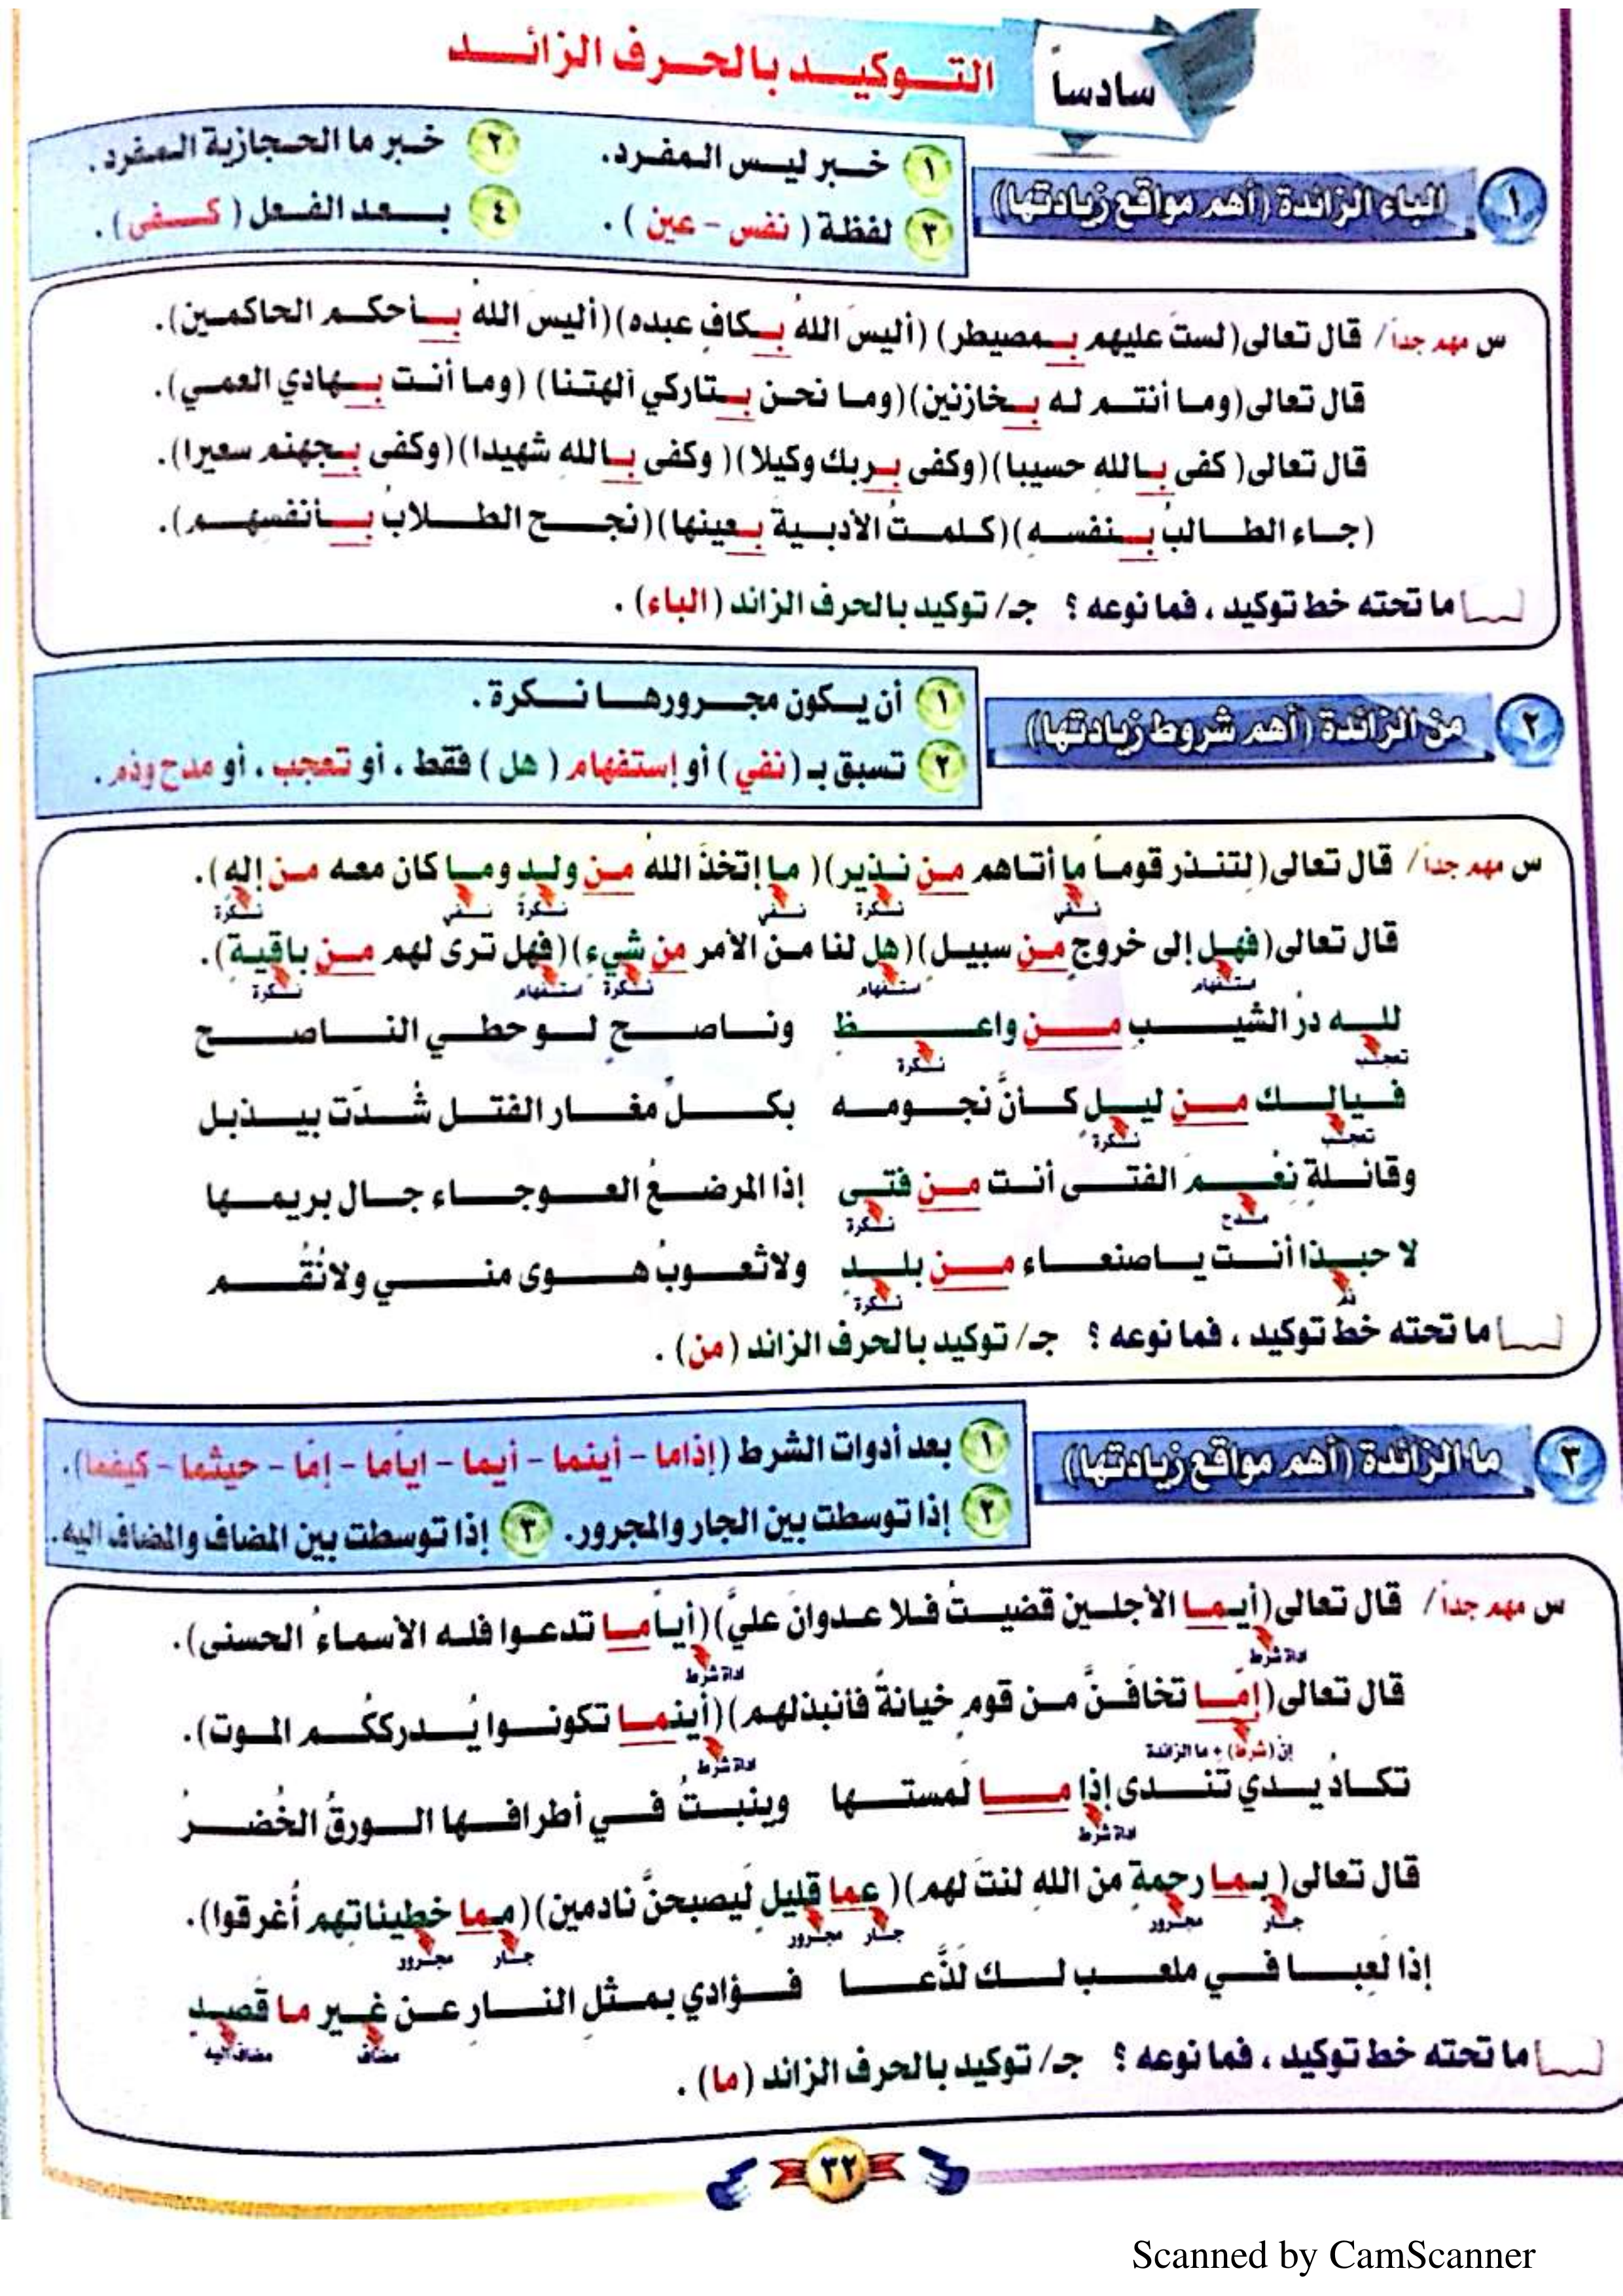 سادساً
التوكيد بالحرف الزائد
١ الباء الزائدة (أهم مواقع زيادتها)
١ خبر ليس المفرد. ٢ خبر ما الحجازية المفرد.
٣ لفظة (نفس - عين). ٤ بعد الفعل (كفى).
س مهم جداً/ قال تعالى(لستَ عليهم بمصيطر) (أليسَ اللهُ بكافٍ عبده)(أليسَ اللهُ بأحكم الحاكمين).
قال تعالى(وما أنتم له بخازنين)(وما نحن بتاركي آلهتنا) (وما أنت بهادي العمي).
قال تعالى( كفى باللهِ حسيبا)(وكفى بربك وكيلا)( وكفى باللهِ شهيدا)(وكفى بجهنم سعيرا).
(جاء الطالبُ بنفسه)(كلمتُ الأدبيةَ بعينها)(نجح الطلابُ بأنفسهم).
ما تحته خط توكيد ، فما نوعه ؟ جـ/ توكيد بالحرف الزائد (الباء) .
٢ من الزائدة (أهم شروط زيادتها)
١ أن يكون مجرورها نكرة .
٢ تسبق بـ (نفي) أو إستفهام ( هل ) فقط ، أو تعجب ، أو مدح وذم .
س مهم جداً/ قال تعالى(لتنذر قوماً ما أتاهم من نذير)( ما إتخذَ اللهُ من ولدٍ وما كان معه من إلهٍ).
نفي نكرة نفي نكرة نفي نكرة
قال تعالى(فهل إلى خروجٍ من سبيل)(هل لنا من الأمر من شيءٍ)(فهل ترى لهم من باقيةٍ).
استفهام استفهام نكرة استفهام نكرة
لله درُ الشيبِ من واعظٍ وناصحٍ لو حظي الناصح
تعجب نكرة
فيالك من ليلٍ كأنَّ نجومه بكلِّ مغار الفتل شُدّت بيذبل
تعجب نكرة
وقائلةٍ نِعْمَ الفتى أنت من فتى إذا المرضعُ العوجاء جال بريمها
مدح نكرة
لا حبذا أنت ياصنعاء من بلدٍ ولاشعوبُ هوى مني ولانُقُم
ذم نكرة
ما تحته خط توكيد ، فما نوعه ؟ جـ/ توكيد بالحرف الزائد (من) .
٣ ما الزائدة (أهم مواقع زيادتها)
١ بعد أدوات الشرط (إذاما - أينما - أيما - اياما - إما - حيثما - كيفما).
٢ إذا توسطت بين الجار والمجرور. ٣ إذا توسطت بين المضاف والمضاف اليه.
س مهم جداً/ قال تعالى(أيما الأجلين قضيتُ فلا عدوانَ عليَّ)(أياً ما تدعوا فله الأسماءُ الحسنى).
اداة شرط اداة شرط
قال تعالى(إمّا تخافَنَّ من قومٍ خيانةً فأنبذلهم)(أينما تكونوا يُدرككُم الموت).
إن (شرط) + ما الزائدة اداة شرط
تكادُ يدي تندى إذا ما لمستها وينبتُ في أطرافها الورقُ الخُضرُ
اداة شرط
قال تعالى( بما رحمةٍ من اللهِ لنتَ لهم)( عما قليلٍ ليصبحنَّ نادمين)(مما خطيئاتهم أُغرقوا).
جار مجرور جار مجرور جار مجرور
إذا لَعِبا في ملعب لك لَذَّعا فؤادي بمثلِ النارِ عن غير ما قصدِ
مضاف مضاف اليه
ما تحته خط توكيد ، فما نوعه ؟ جـ/ توكيد بالحرف الزائد (ما) .
٣٢
Scanned by CamScanner